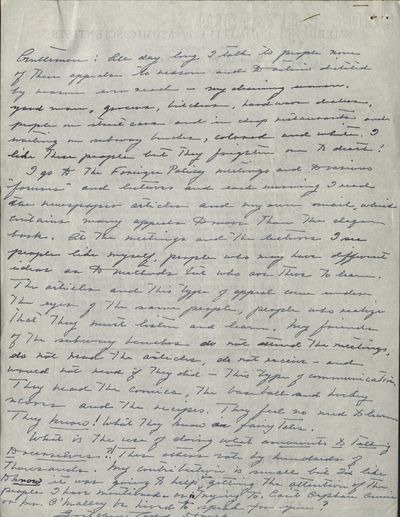 Gentlemen: All day long I talk to people none
of them appeals to reason and
by ever read — my cleaning woman,
yard man, grocers, butchers, hardware dealers,
people on street cars and in cheap restaurants and
waiting on subway benches, colored and white. I
like these people but they frighten me to death!
I go to the Foreign Policy meetings and to various
"forums" and lectures and each morning I read
the newspaper articles and my own mail, which
contains many appeals to more than the
book. At the meetings and the lectures I see
people like myself, people who may have different
ideas as to methods but who are there to learn.
The articles and this type of appeal come under
the eyes of the same people, people who realize
that they must listen and learn. My friends
of the subway benches do not attend the meetings,
do not read the articles, do not receive — and
would not read if they did — this type of communication.
They read the comics, the baseball and hockey
scores and the recipes. They feel no need to learn.
They know! What they know are fairy tales.
What is the use of doing what amounts to talking
to ourselves? These others vote by hundreds of
thousands. My contribution is small but I'd like
to know it was going to help getting the attention of the
people I have mentioned or trying to. Can't Orphan Annie
or Mr. O'Malley be hired to speak for you?